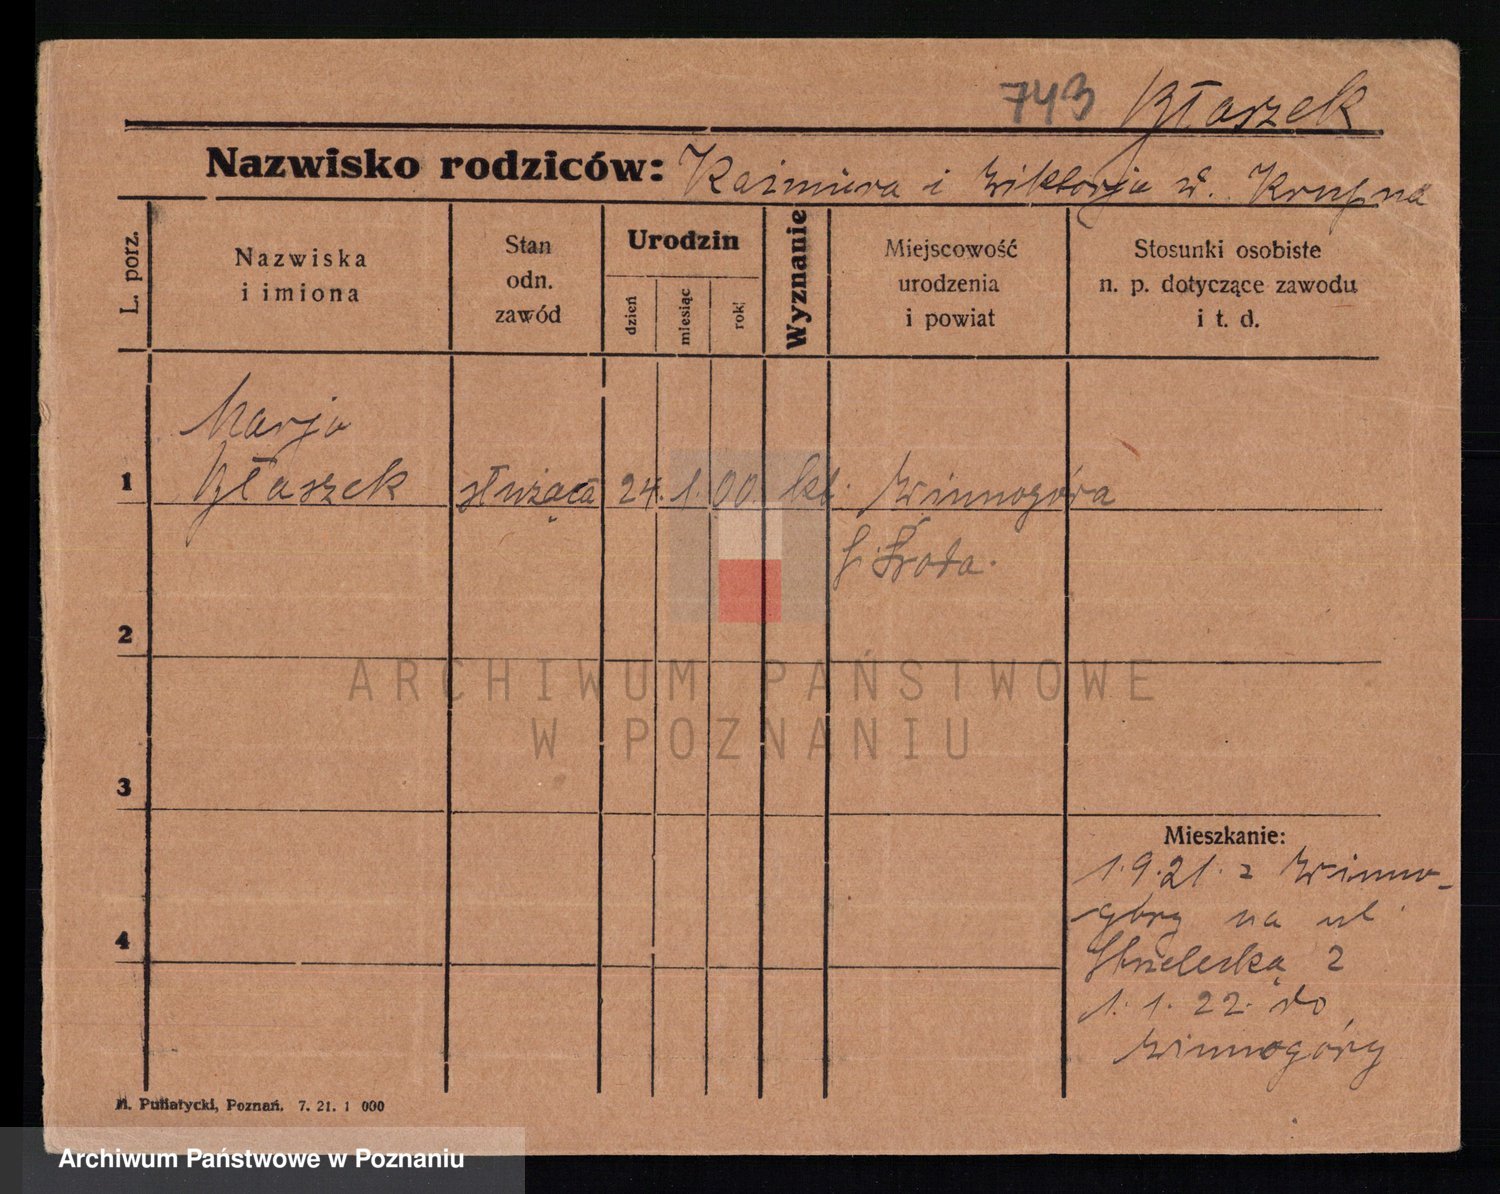 743 Błaszek
Nazwisko rodziców: Kaźmiera i Wiktorja z. Krupna
L. porz.
Nazwiska
i imiona
Stan
odn.
zawód
Urodzin
dzień
miesiąc
rok
Wyznanie
Miejscowość
urodzenia
i powiat
Stosunki osobiste
n. p. dotyczące zawodu
i t. d.
Marja
1 Błaszek służąca 24. 1. 00. kt. Winnogóra
Środa.
2
3
Mieszkanie:
1.9.21. z Winno-
góry na ul.
4
Strzelecką 2
1. 1. 22. do
Winnogóry
Poznań. 7. 21. 1 000
ARCHIWUM PAŃSTWOWE
W POZNANIU
Archiwum Państwowe w Poznaniu